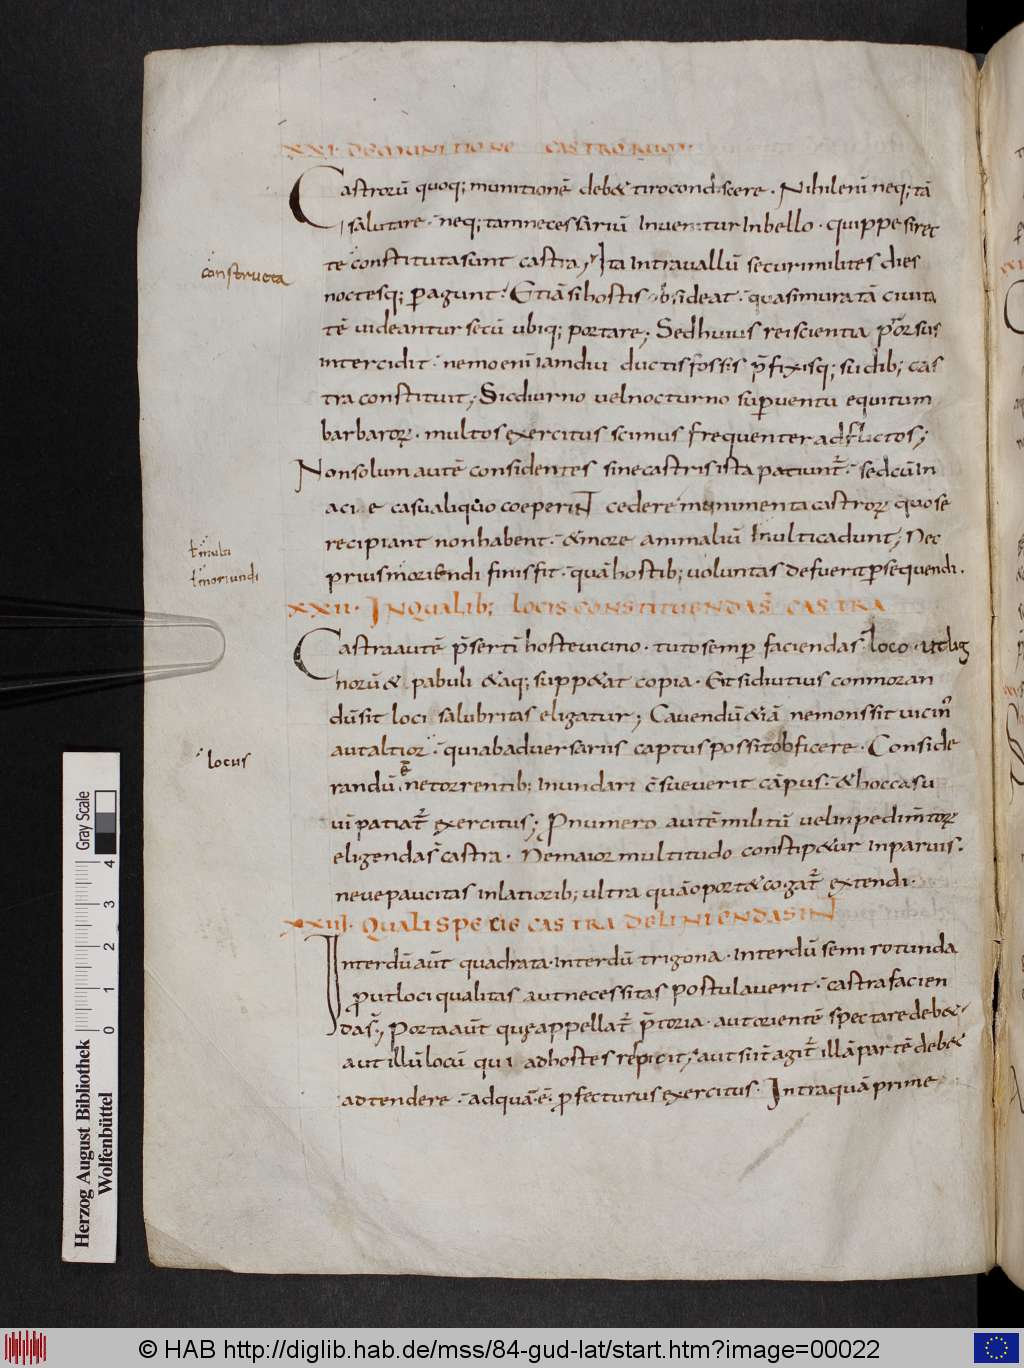 XXI. DE MUNITIONE CASTRORUM
Castrorū quoq; munitionē deb& tiro condiscere. Nihil enī neq; tā
salutare. neq; tam necessariū Invenitur In bello. quippe si rec
te constituta sunt castra; Ita Intra vallū securi milites dies
constructa
noctesq; peragunt. Etiā si hostis obsideat. quasi muratā civita
tē videantur secū ubiq; portare; Sed huius rei scientia prorsus
intercidit. nemo enī iam diu ductis fossis p̄fixisq; sudib; cas
tra constituit; Sic diurno vel nocturno supventu equitum
barbaroꝝ. multos exercitus scimus frequenter adflictos;
Non solum autē considentes sine castris ista patiunt̄. sed cū In
acie casu aliquo coeperint cedere munimenta castroꝝ quo se
recipiant non habent. & more animaliū Inulti cadunt; Nec
ł multi
prius moriendi finis fit. quā hostib; voluntas defuerit psequendi.
ł moriundi
XXII. IN QUALIB; LOCIS CONSTITUENDAS̄ CASTRA
Castra autē p̄sertī hoste vicino. tuto semp facienda s̄ loco. ut lig
norū & pabuli & aq; supp&at copia. Et si diutius conmoran
dū sit loci salubritas eligatur; Cavendū &iā ne mons sit vicin
aut altior. qui ab adversariis captus possit officere. Conside
locus
randū ē ne torrentib; Inundari c̄sueverit cāpus. & hoc casu
vī patiat̄ exercitus; P numero autē militū vel inpedimtoꝝ
eligenda s̄ castra. Ne maior multitudo constip&ur In parvis.
neve paucitas In latiorib; ultra quā oport& cogat̄ extendi.
XXIII. QUALI SPECIE CASTRA DELINIENDA SINT
Interdū aūt quadrata. Interdū trigona. Interdū semirotunda
prout loci qualitas aut necessitas postulaverit. castra facien
da s̄; Porta aūt quę appellat̄ p̄toria. aut orientē spectare deb&.
aut illū locū qui ad hostes respicit; aut si it̄ agit̄ illā partē deb&
adtendere. ad quā ē profecturus exercitus. Intra quā prime
Herzog August Bibliothek
Wolfenbüttel
0 1 2 3 4
Gray Scale
© HAB http://diglib.hab.de/mss/84-gud-lat/start.htm?image=00022